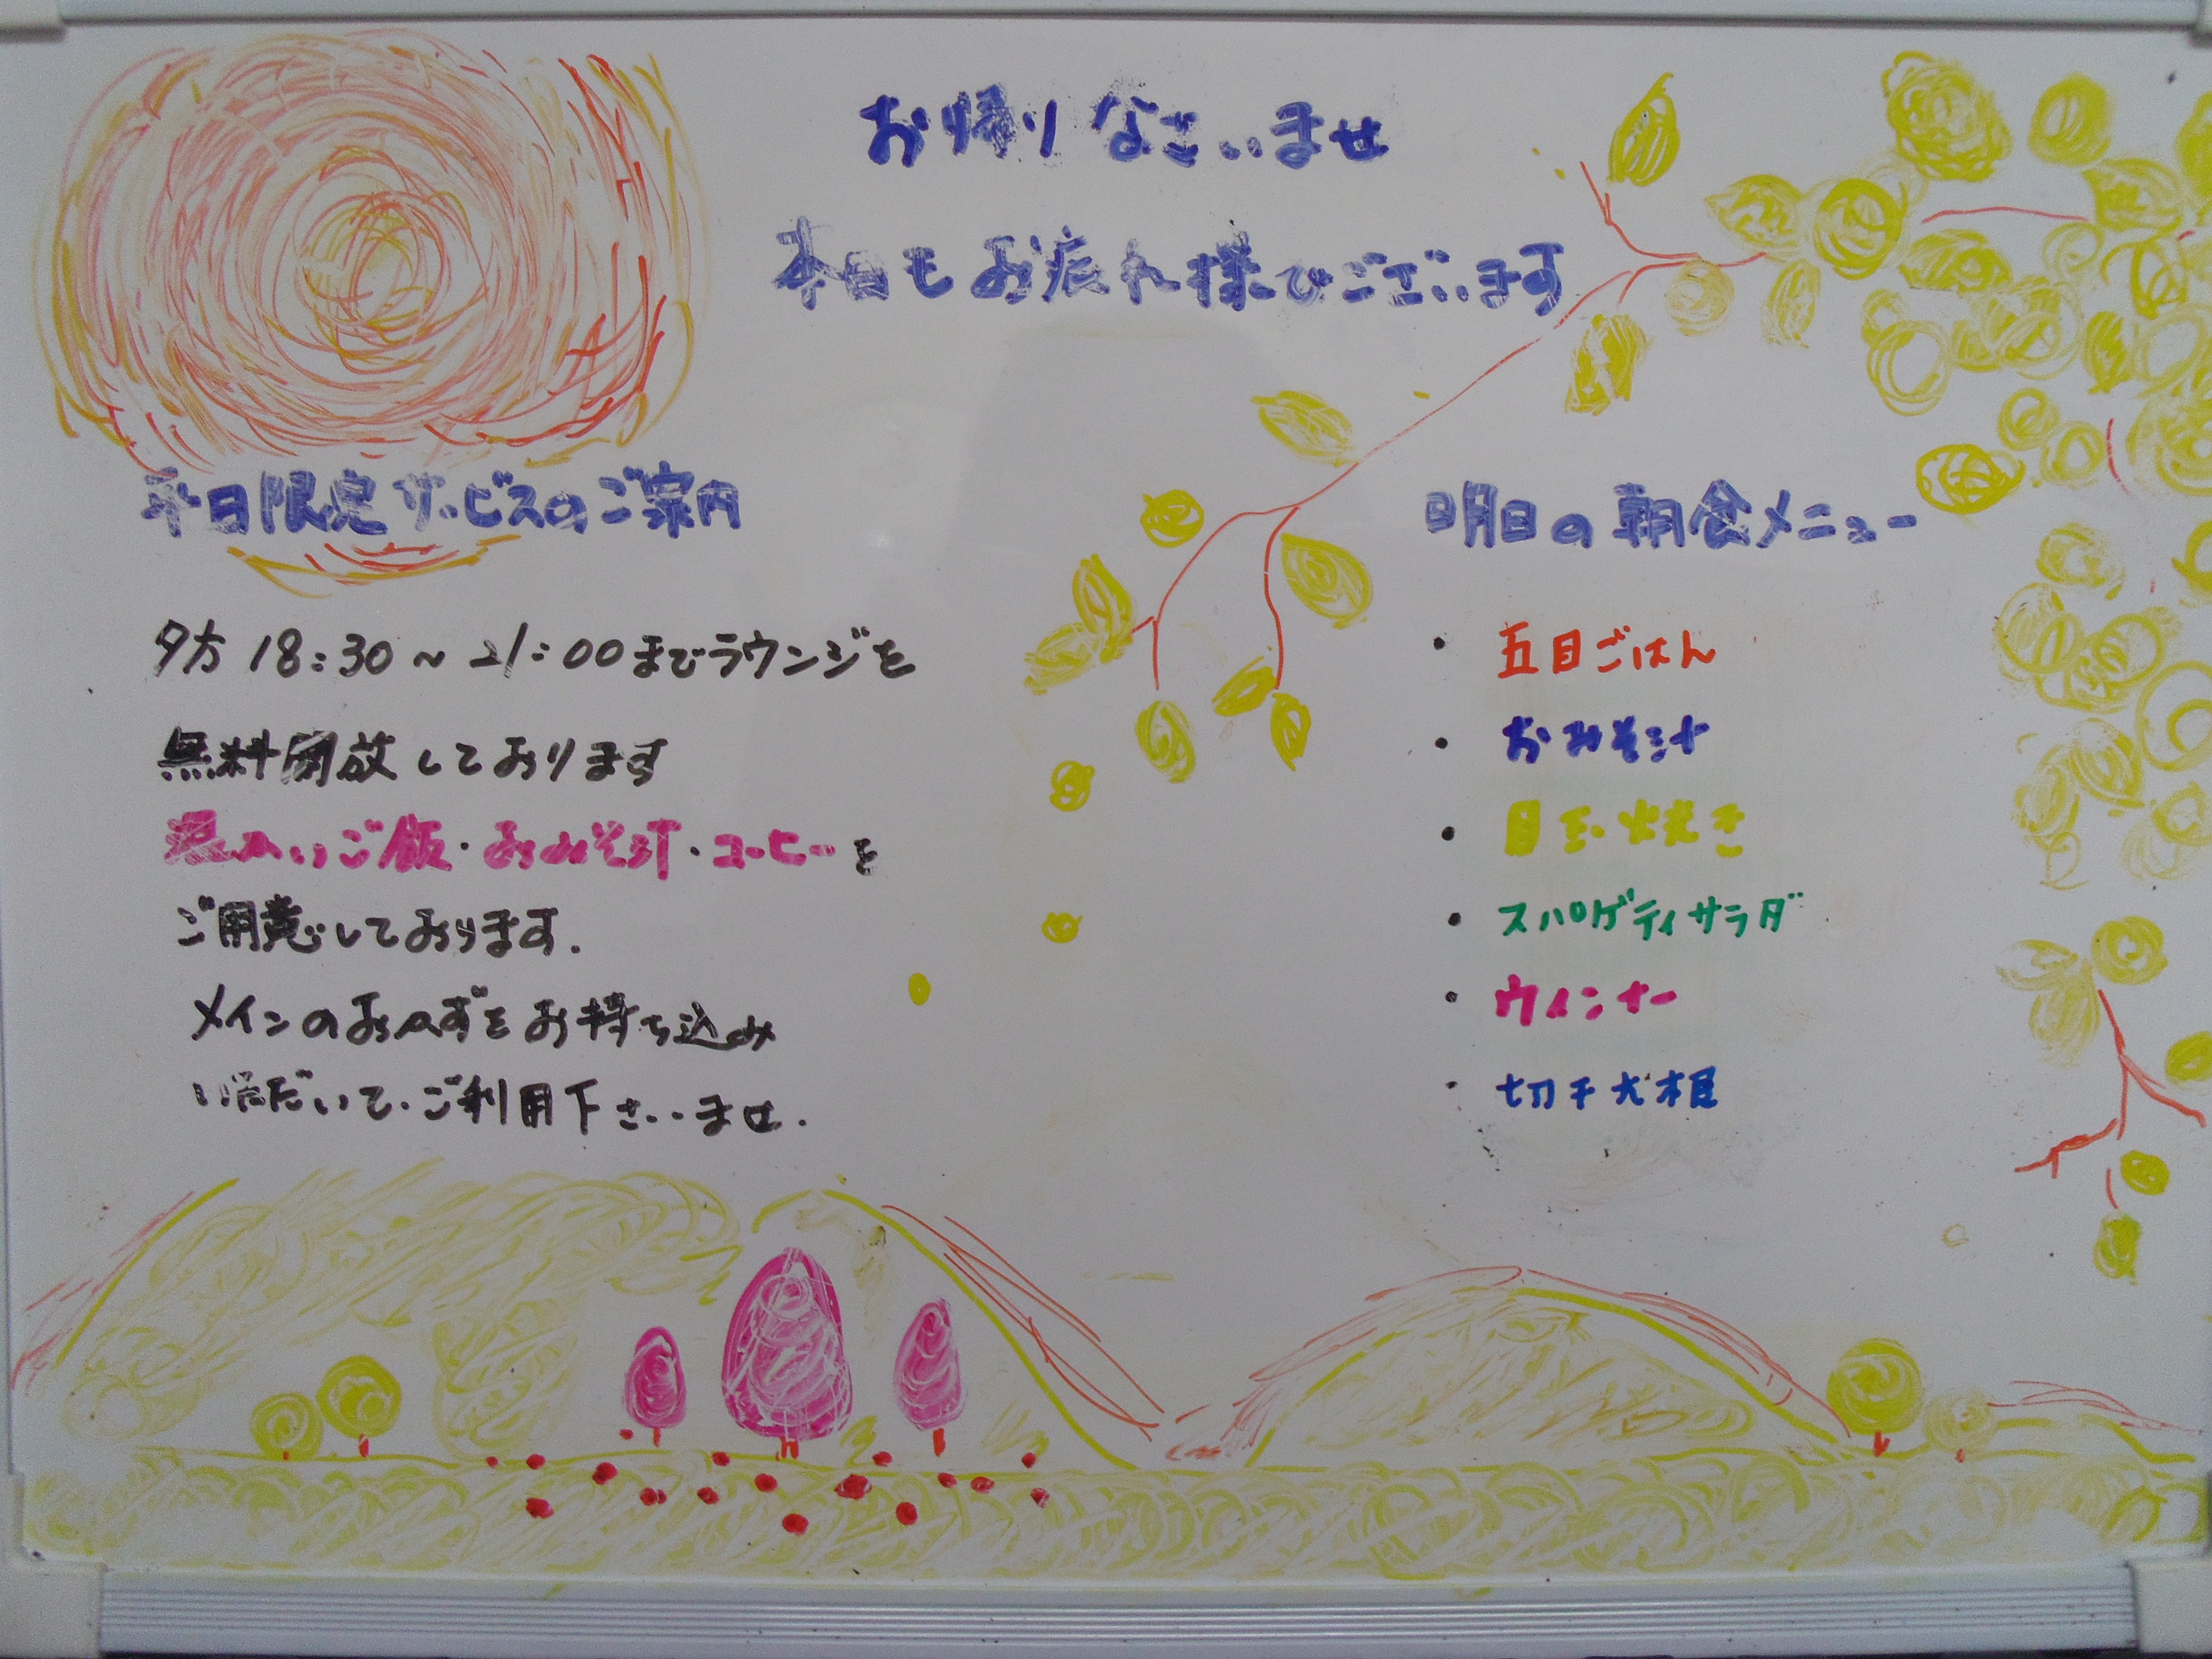 お帰りなさいませ
本日もお疲れ様でございます
平日限定サービスのご案内
夕方 18:30～21:00までラウンジを
無料開放しております
温かいご飯・おみそ汁・コーヒーを
ご用意しております.
メインのおかずをお持ち込み
いただいて、ご利用下さいませ.
明日の朝食メニュー
・五目ごはん
・おみそ汁
・目玉焼き
・スパゲティサラダ
・ウィンナー
・切干大根